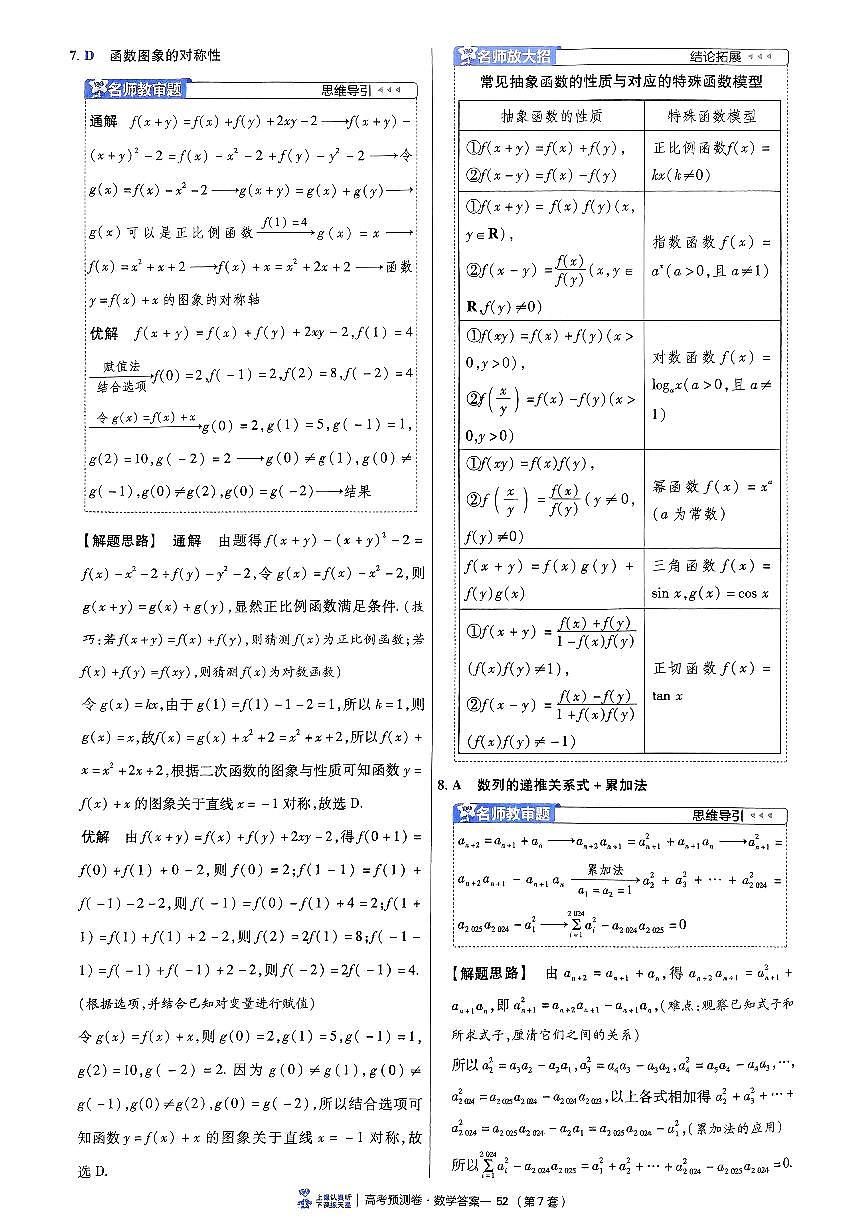 7. D 函数图象的对称性
名师教审题 思维导引
通解 f(x+y)=f(x)+f(y)+2xy-2→f(x+y)-
(x+y)²-2=f(x)-x²-2+f(y)-y²-2→令
g(x)=f(x)-x²-2→g(x+y)=g(x)+g(y)→
g(x)可以是正比例函数 f(1)=4→g(x)=x→
f(x)=x²+x+2→f(x)+x=x²+2x+2→函数
y=f(x)+x的图象的对称轴
优解 f(x+y)=f(x)+f(y)+2xy-2,f(1)=4
赋值法 结合选项→f(0)=2,f(-1)=2,f(2)=8,f(-2)=4
令g(x)=f(x)+x→g(0)=2,g(1)=5,g(-1)=1,
g(2)=10,g(-2)=2→g(0)≠g(1),g(0)≠
g(-1),g(0)≠g(2),g(0)=g(-2)→结果
【解题思路】 通解 由题得f(x+y)-(x+y)²-2=
f(x)-x²-2+f(y)-y²-2,令g(x)=f(x)-x²-2,则
g(x+y)=g(x)+g(y),显然正比例函数满足条件.(技
巧:若f(x+y)=f(x)+f(y),则猜测f(x)为正比例函数;若
f(x)+f(y)=f(xy),则猜测f(x)为对数函数)
令g(x)=kx,由于g(1)=f(1)-1-2=1,所以k=1,则
g(x)=x,故f(x)=g(x)+x²+2=x²+x+2,所以f(x)+
x=x²+2x+2,根据二次函数的图象与性质可知函数y=
f(x)+x的图象关于直线x=-1对称,故选D.
优解 由f(x+y)=f(x)+f(y)+2xy-2,得f(0+1)=
f(0)+f(1)+0-2,则f(0)=2;f(1-1)=f(1)+
f(-1)-2-2,则f(-1)=f(0)-f(1)+4=2;f(1+
1)=f(1)+f(1)+2-2,则f(2)=2f(1)=8;f(-1-
1)=f(-1)+f(-1)+2-2,则f(-2)=2f(-1)=4.
(根据选项,并结合已知对变量进行赋值)
令g(x)=f(x)+x,则g(0)=2,g(1)=5,g(-1)=1,
g(2)=10,g(-2)=2. 因为g(0)≠g(1),g(0)≠
g(-1),g(0)≠g(2),g(0)=g(-2),所以结合选项可
知函数y=f(x)+x的图象关于直线x=-1对称,故
选D.
名师放大招 结论拓展
常见抽象函数的性质与对应的特殊函数模型
抽象函数的性质 特殊函数模型
①f(x+y)=f(x)+f(y), 正比例函数f(x)=
②f(x-y)=f(x)-f(y) kx(k≠0)
①f(x+y)=f(x)f(y)(x,
y∈R), 指数函数f(x)=
②f(x-y)=f(x)/f(y)(x,y∈ aˣ(a>0,且a≠1)
R,f(y)≠0)
①f(xy)=f(x)+f(y)(x>
0,y>0), 对数函数f(x)=
②f(x/y)=f(x)-f(y)(x> logₐx(a>0,且a≠
0,y>0) 1)
①f(xy)=f(x)f(y),
②f(x/y)=f(x)/f(y)(y≠0, 幂函数f(x)=xᵃ
f(y)≠0) (a为常数)
f(x+y)=f(x)g(y)+ 三角函数f(x)=
f(y)g(x) sin x,g(x)=cos x
①f(x+y)=(f(x)+f(y))/(1-f(x)f(y))
(f(x)f(y)≠1), 正切函数f(x)=
②f(x-y)=(f(x)-f(y))/(1+f(x)f(y)) tan x
(f(x)f(y)≠-1)
8. A 数列的递推关系式+累加法
名师教审题 思维导引
aₙ₊₂=aₙ₊₁+aₙ→aₙ₊₂aₙ₊₁=a²ₙ₊₁+aₙ₊₁aₙ→a²ₙ₊₁=
aₙ₊₂aₙ₊₁-aₙ₊₁aₙ 累加法 a₁=a₂=1→a₂²+a₃²+⋯+a²₂₀₂₄=
a₂₀₂₅a₂₀₂₄-a₁²→∑(i=1→2024)aᵢ²-a₂₀₂₄a₂₀₂₅=0
【解题思路】 由aₙ₊₂=aₙ₊₁+aₙ,得aₙ₊₂aₙ₊₁=a²ₙ₊₁+
aₙ₊₁aₙ,即a²ₙ₊₁=aₙ₊₂aₙ₊₁-aₙ₊₁aₙ,(难点:观察已知式子和
所求式子,厘清它们之间的关系)
所以a₂²=a₃a₂-a₂a₁,a₃²=a₄a₃-a₃a₂,a₄²=a₅a₄-a₄a₃,⋯,
a²₂₀₂₄=a₂₀₂₅a₂₀₂₄-a₂₀₂₄a₂₀₂₃,以上各式相加得a₂²+a₃²+⋯+
a²₂₀₂₄=a₂₀₂₅a₂₀₂₄-a₂a₁=a₂₀₂₅a₂₀₂₄-a₁²,(累加法的应用)
所以∑(i=1→2024)aᵢ²-a₂₀₂₄a₂₀₂₅=a₁²+a₂²+⋯+a²₂₀₂₄-a₂₀₂₅a₂₀₂₄=0.
上课认真听
下课练天星
高考预测卷·数学答案—52(第7套)